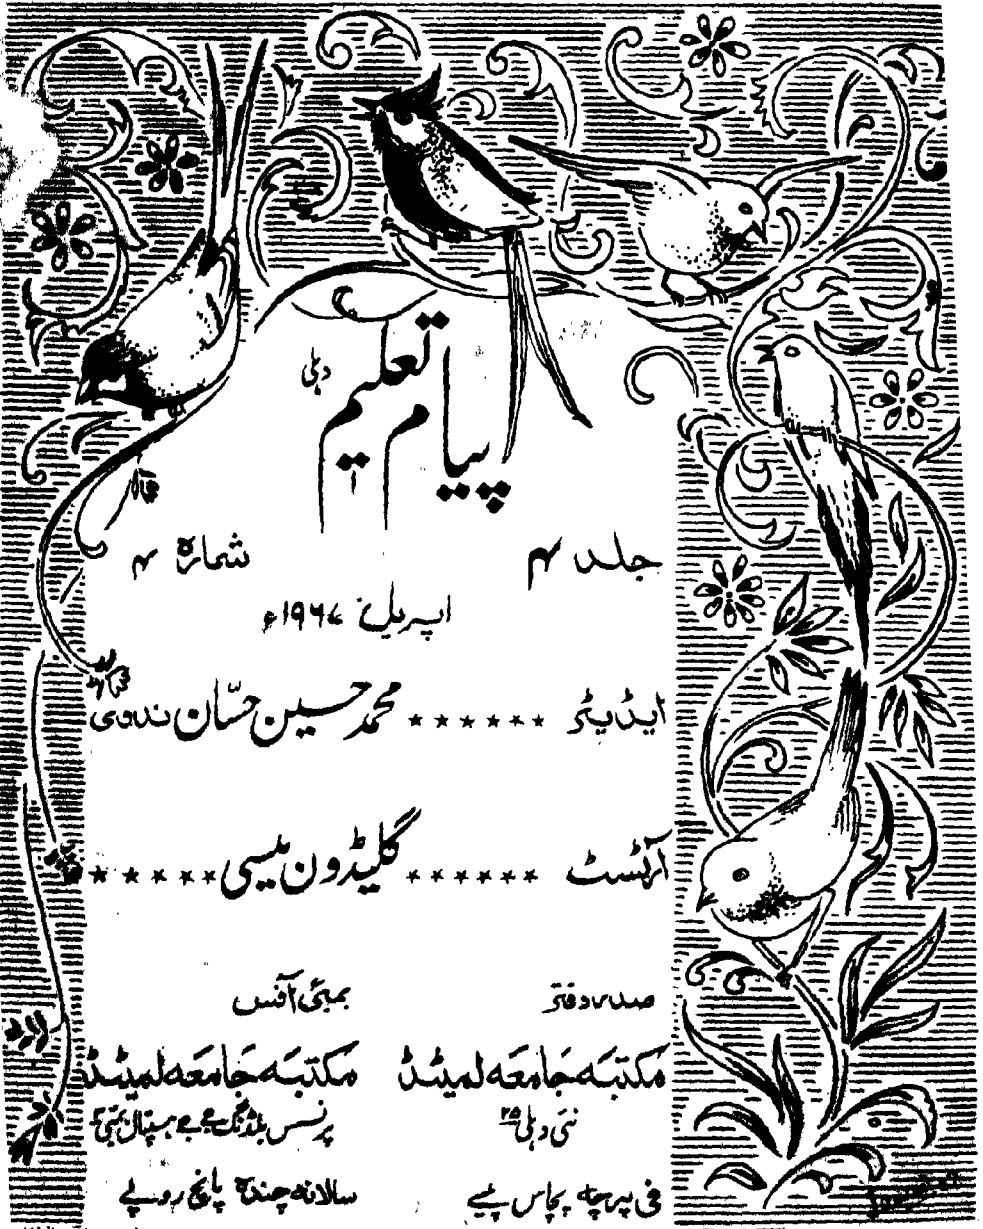 پیام تعلیم دہلی
جلد ۴ شمارہ ۴
اپریل ۱۹۶۷ء
ایڈیٹر ٭٭٭٭٭٭ محمد حسین حسّان ندوی
آرٹسٹ ٭٭٭٭٭٭ گلیڈون میسی ٭٭٭٭٭
صدر دفتر بمبئی آفس
مکتبہ جامعہ لمیٹڈ مکتبہ جامعہ لمیٹڈ
نئی دہلی ۲۵ پرنسس بلڈنگ جے جے ہسپتال بمبئی
فی پرچہ پچاس پیسے سالانہ چندہ پانچ روپے